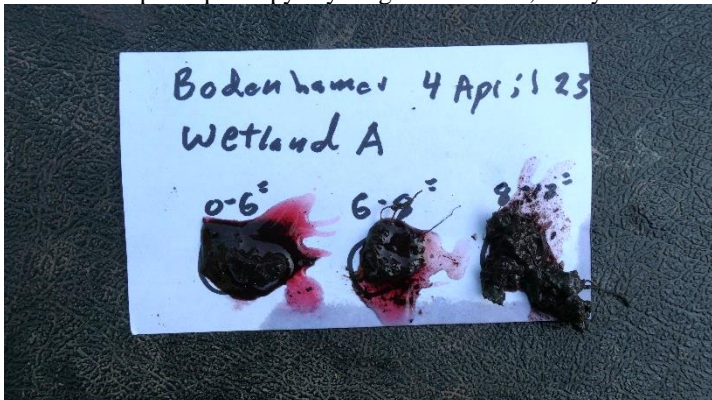 Bodenhamer 4 April 23
Wetland A
0-6" 6-8" 8-12"